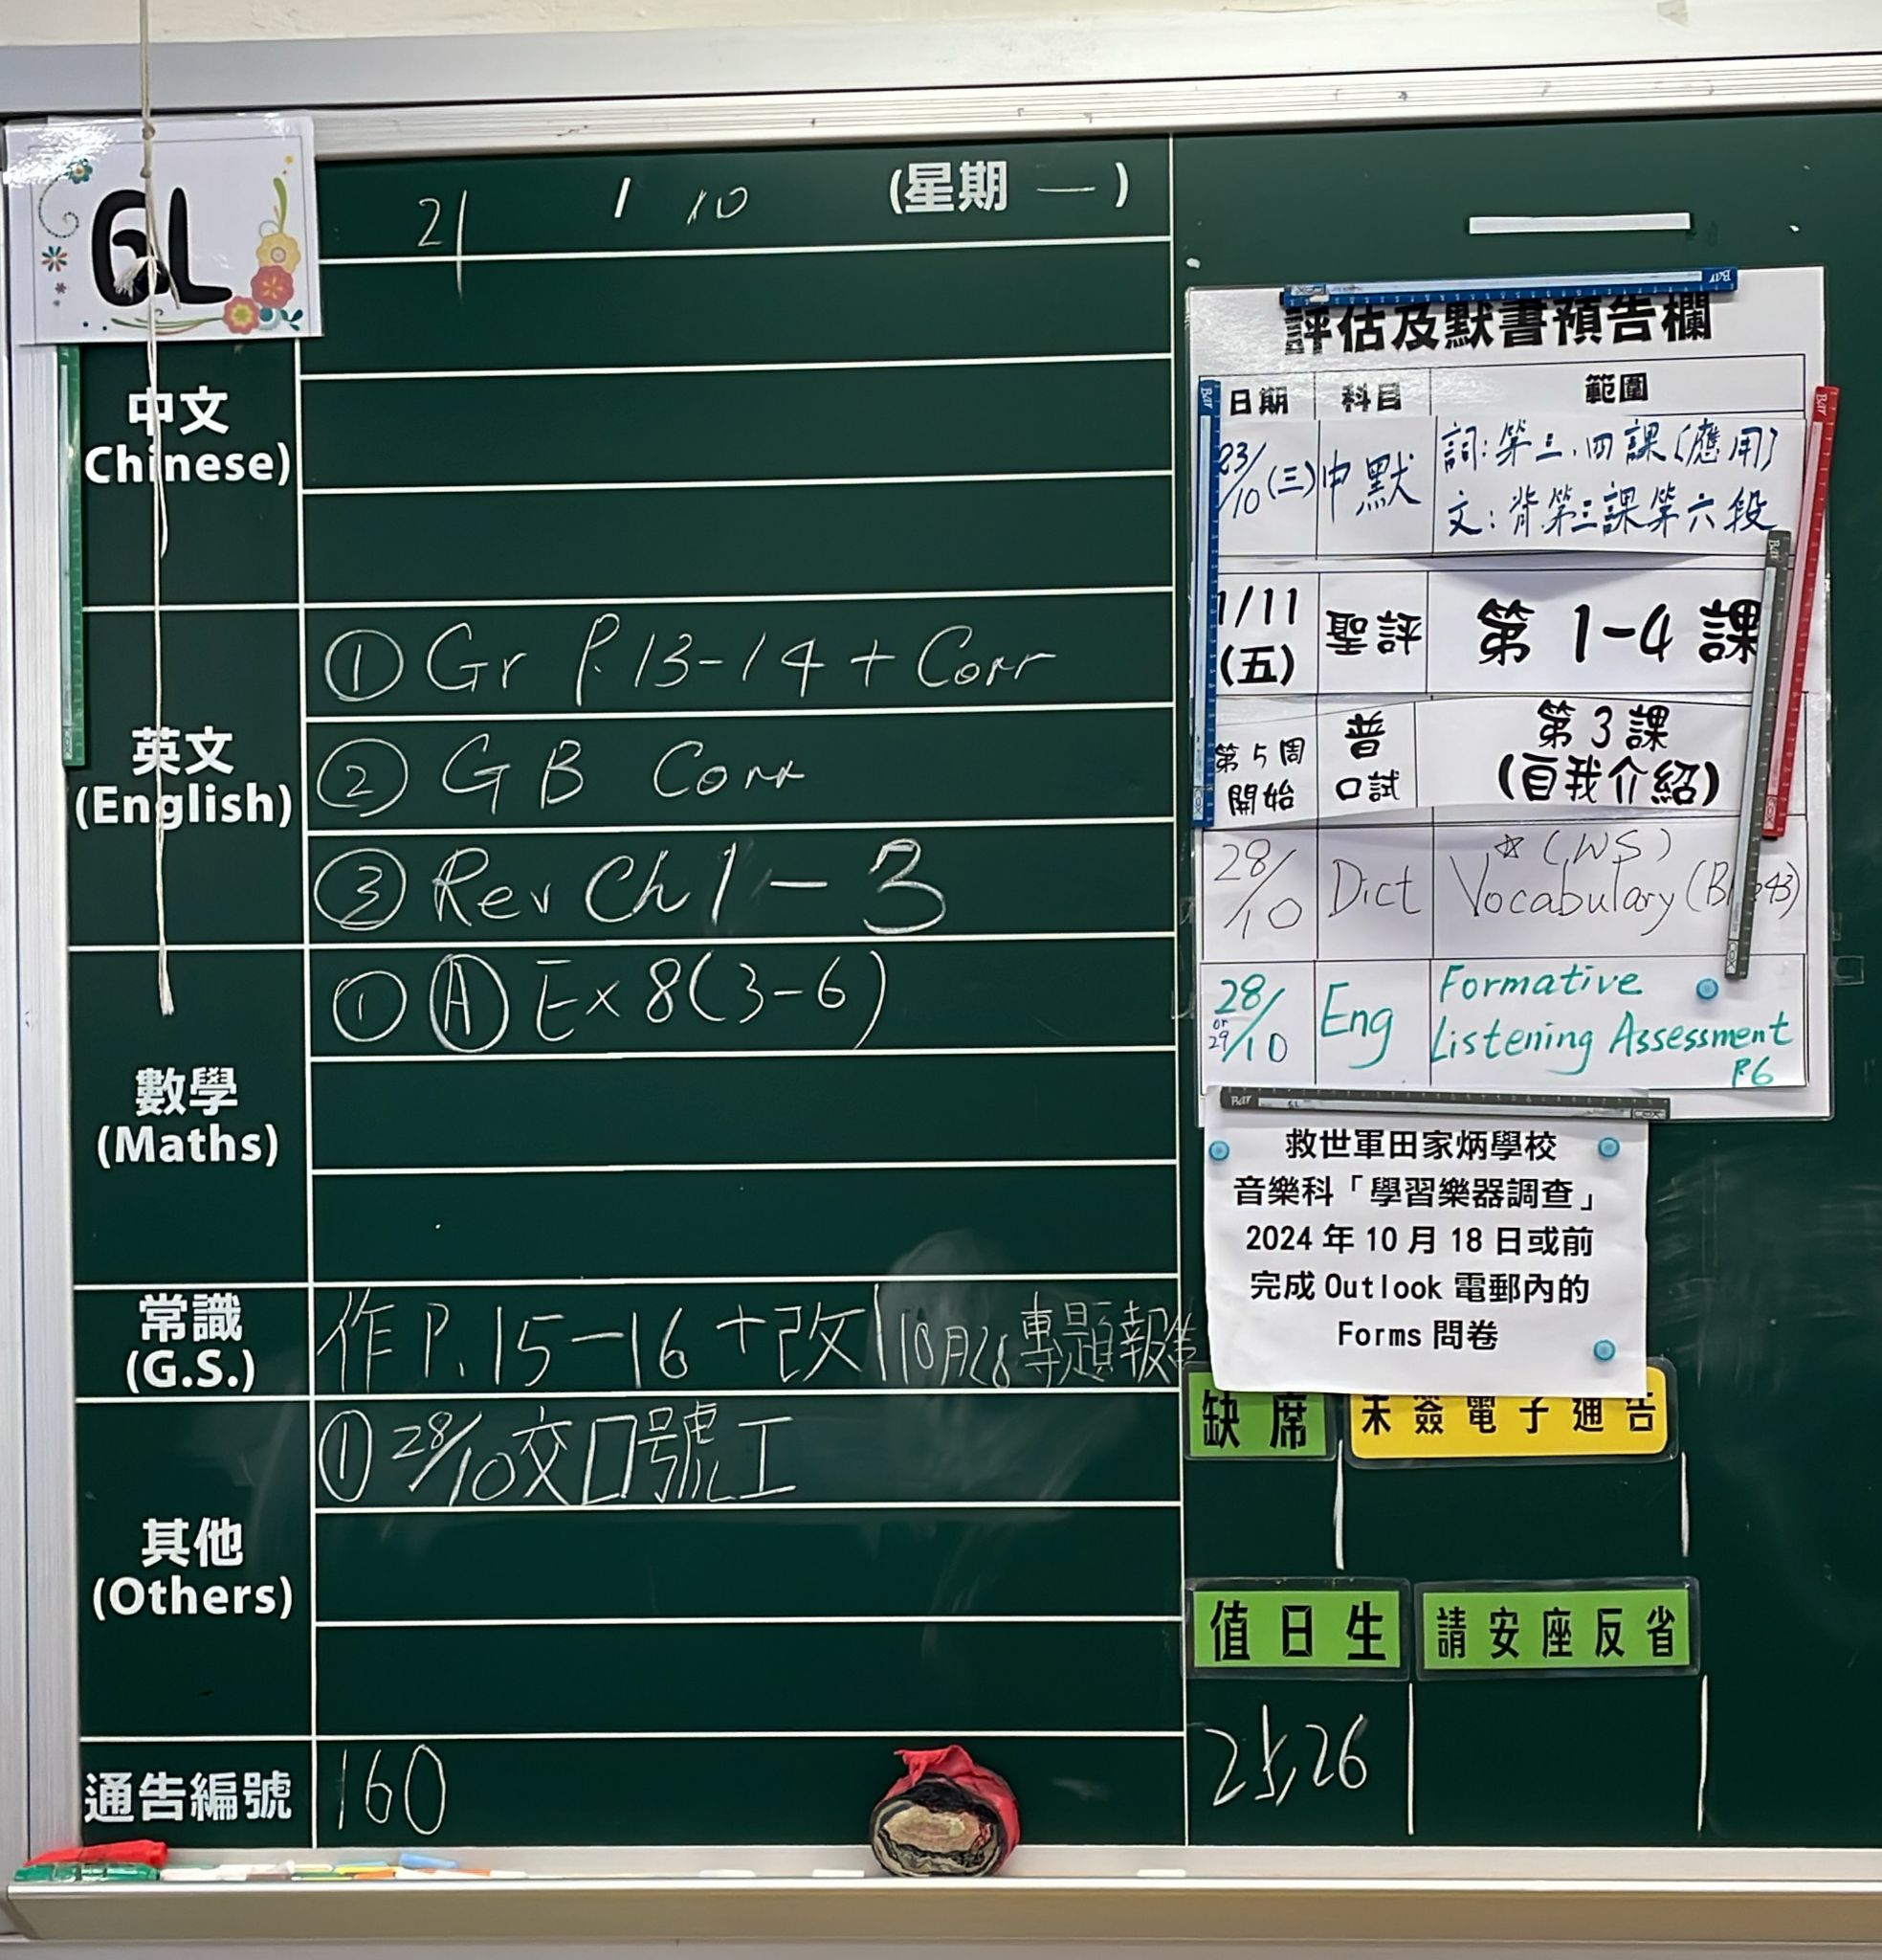 6L
21 / 10 (星期一)
中文
Chinese)
英文
(English)
① Gr P.13-14 + Corr
② GB Corr
③ Rev Ch 1 - 3
數學
(Maths)
① Ⓐ Ex 8(3-6)
常識
(G.S.)
作P.15-16+改 10月28專題報告
其他
(Others)
① 28/10交口號工
通告編號
160
評估及默書預告欄
日期 科目 範圍
23/10(三) 中默 詞:第三.四課(應用)
文:背第三課第六段
1/11 (五) 聖評 第1-4課
第5周開始 普口試 第3課
(自我介紹)
28/10 Dict ☆(WS)
Vocabulary
28/10 or 29 Eng Formative
Listening Assessment
P.6
Bar
救世軍田家炳學校
音樂科「學習樂器調查」
2024年10月18日或前
完成Outlook電郵內的
Forms問卷
缺席 未簽電子通告
值日生 請安座反省
25,26